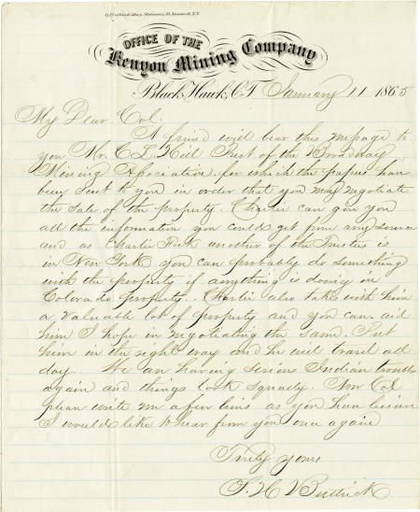 OFFICE OF THE
Kenyon Mining Company
Black Hawk, C.T. January 11 1865
My Dear Col.
A friend will bear this message to
you Mr. C L Hill Prest of the Broadway
Mining Association for which the papers have
been sent to you in order that you may negotiate
the sale of the property. Charlie can give you
all the information you could get from any person
and as Charlie Peck another of the Trustees is
in New York you can probably do something
with the property if anything is doing in
Colorado property. Charlie also takes with him
a valuable lot of property and you can aid
him I hope in negotiating the same. Put
him in the right way and he will travel all
day We are having serious Indian troubles
again and things look squally. Now Col
please write me a few lines as you have leisure
I would like to hear from you once again
Truly yours
H